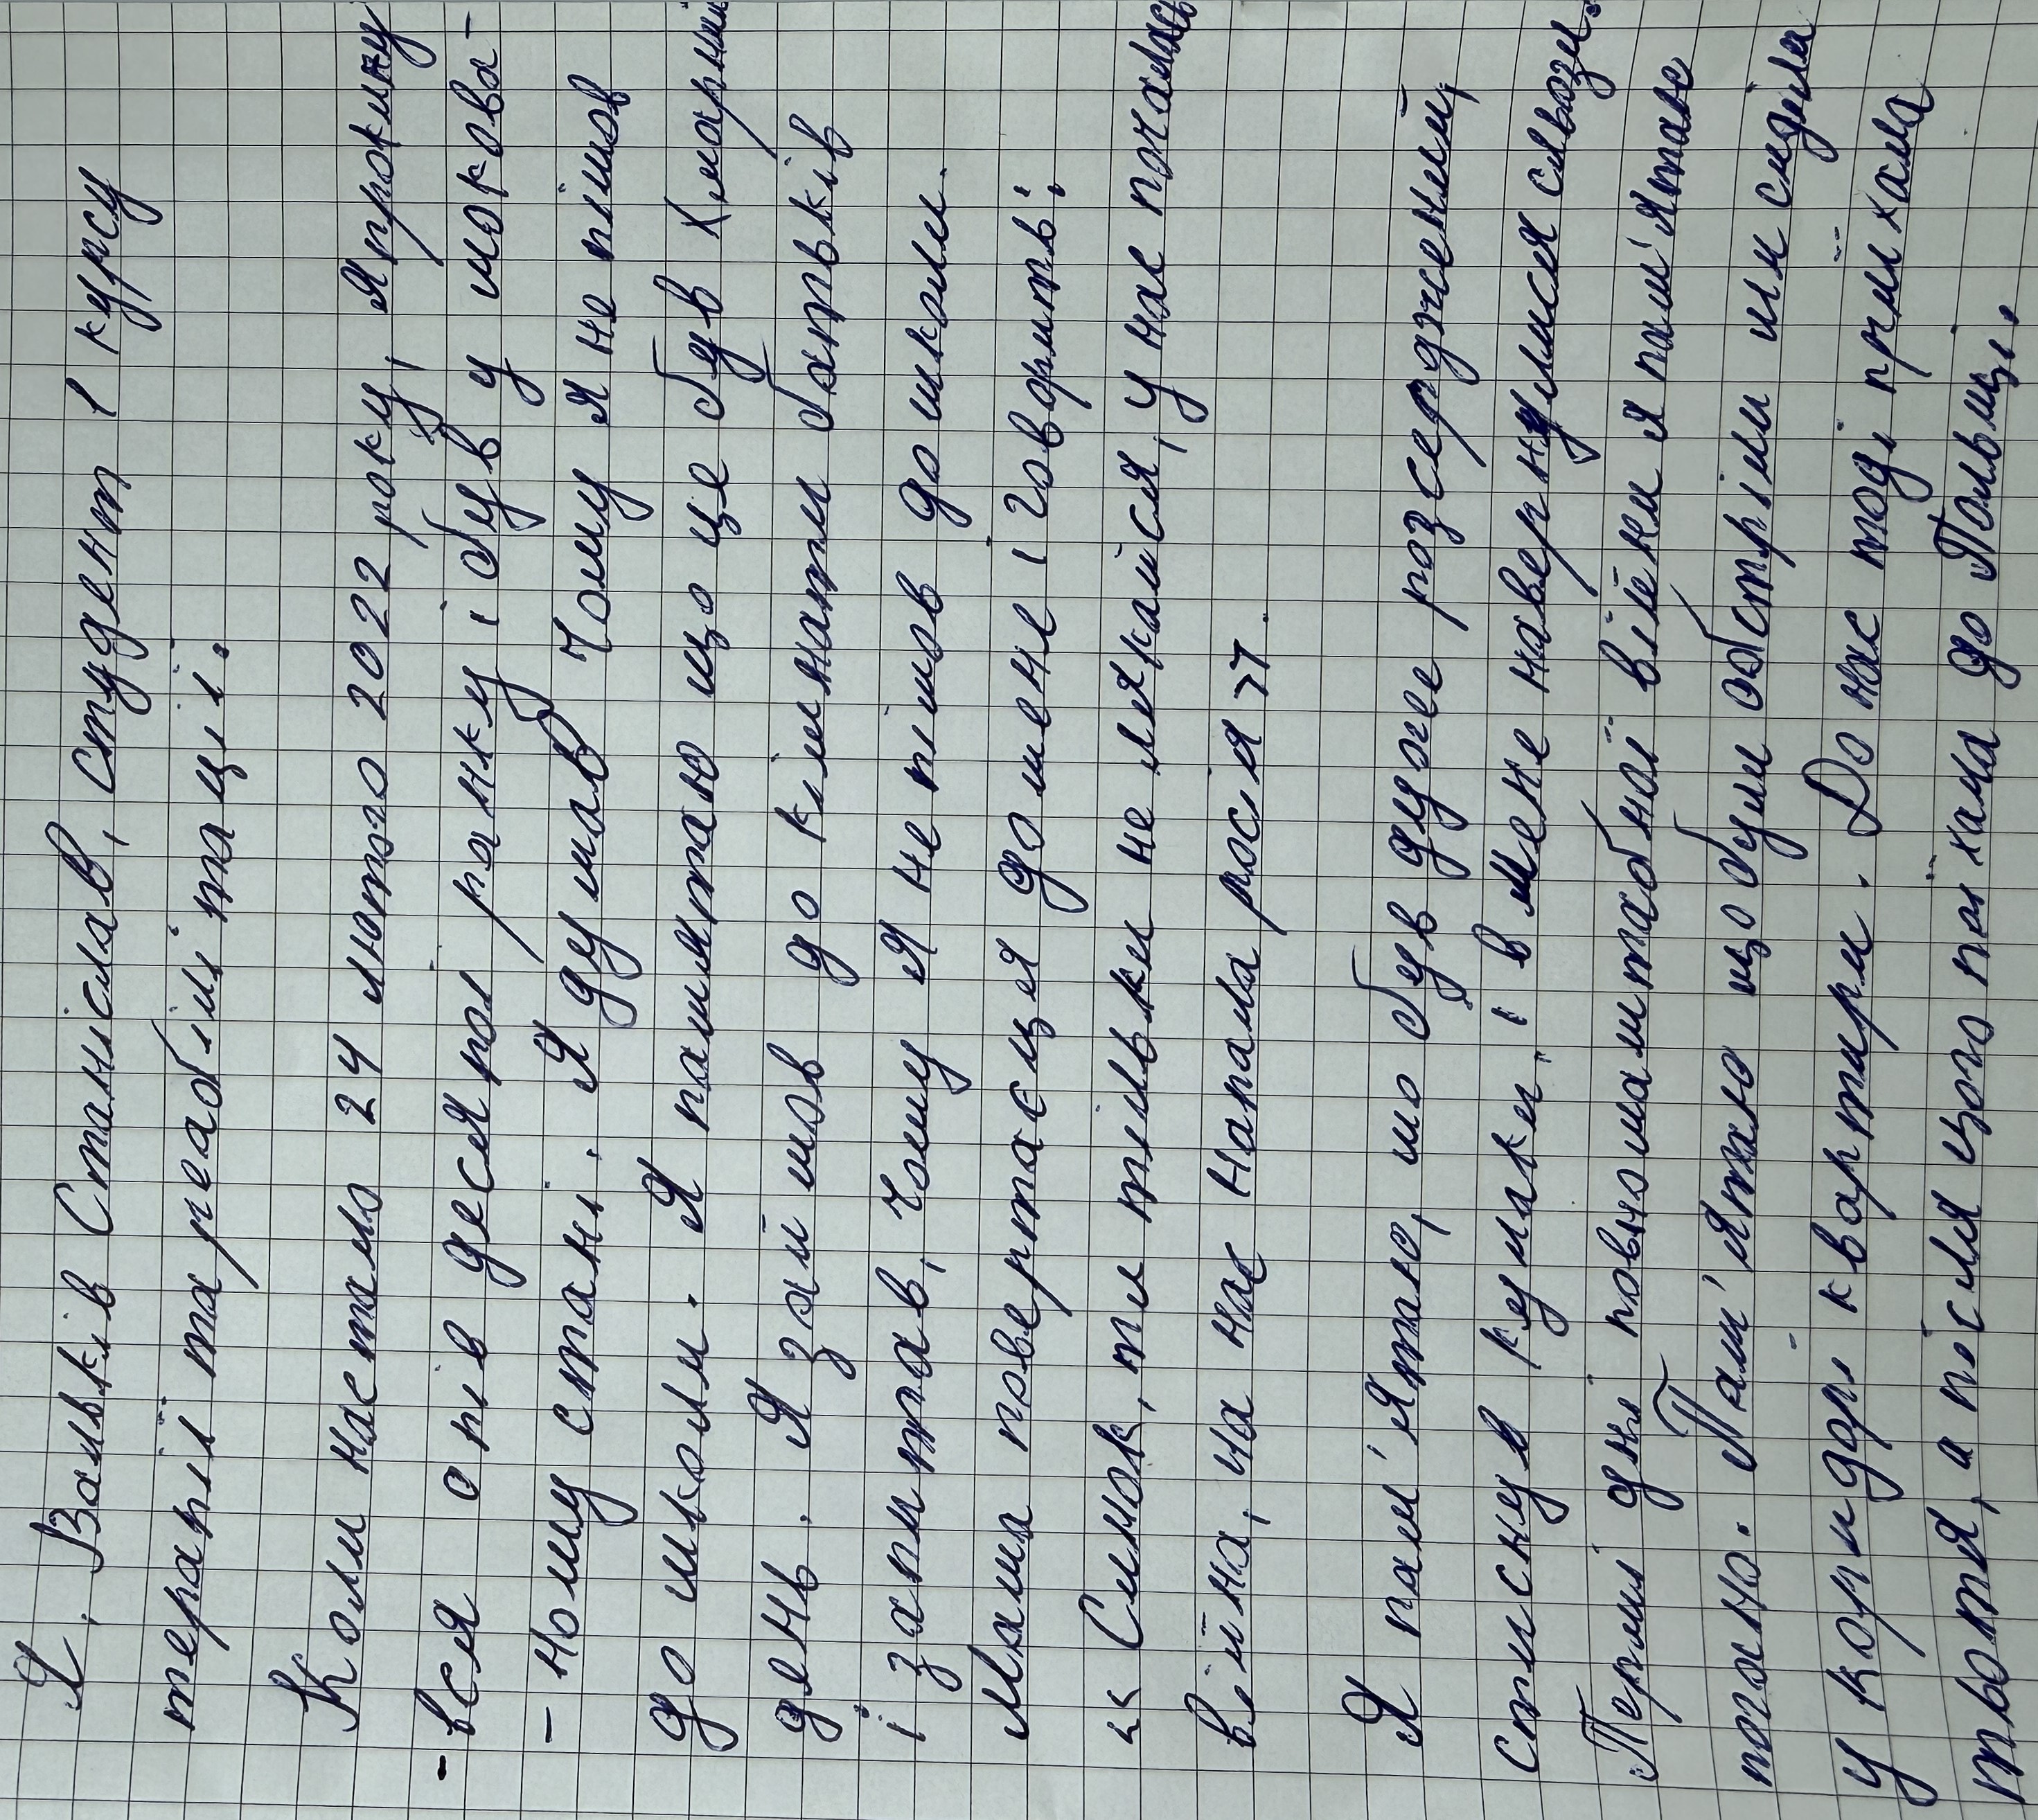 Я, Вальків Станіслав, студент 1 курсу
терапії та реабілітації.
Коли настало 24 лютого 2022 року, я прокинув
-вся о пів десятої ранку і був у шокова-
-ному стані. Я думав чому я не пішов
до школи. Я памятаю що це був хмарний
день. Я зайшов до кімнати батьків
і запитав, чому я не пішов до школи.
Мама повертається до мене і говорить:
«Синок, ти тільки не лякайся, у нас почалась
війна, на нас напала росія».
Я пам'ятаю, шо був дуже розсерджений,
стиснув кулаки, і в мене навернулися сльози.
Перші дні повномаштабної війни я пам'ятаю
погано. Пам'ятаю що були обстріли ми сиділи
у коридорі квартири. До нас тоді приїхала
тьотя, а після цього поїхала до Польщі.